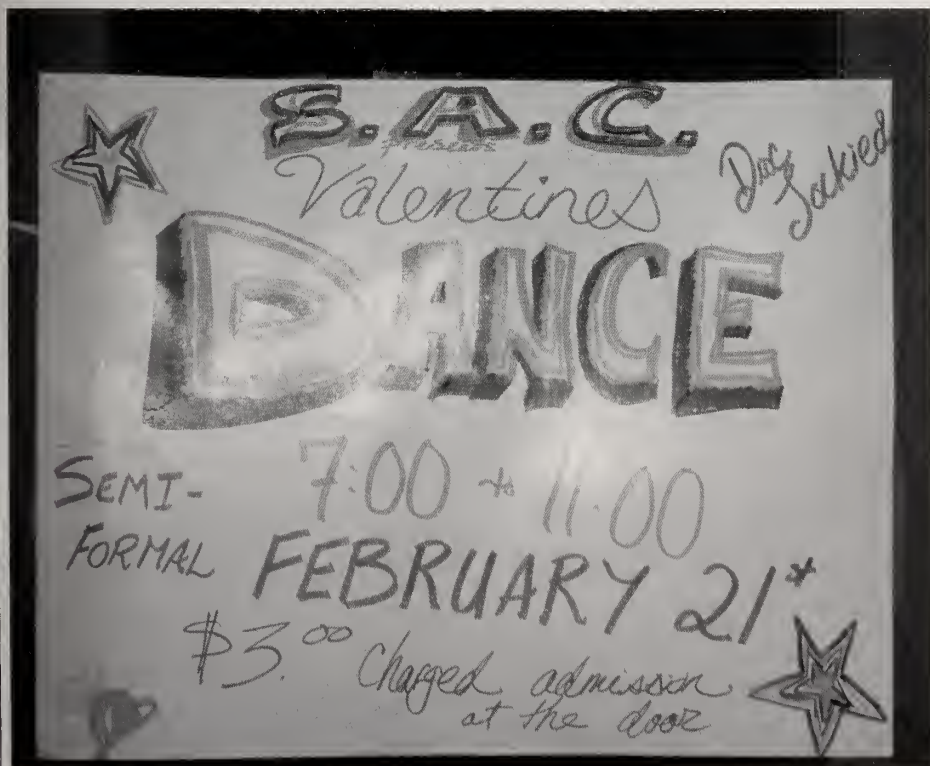 S.A.C.
Presents
Valentines
DANCE
SEMI-
FORMAL
7:00 to 11:00
FEBRUARY 21*
$3.00 Charged admisson
at the door